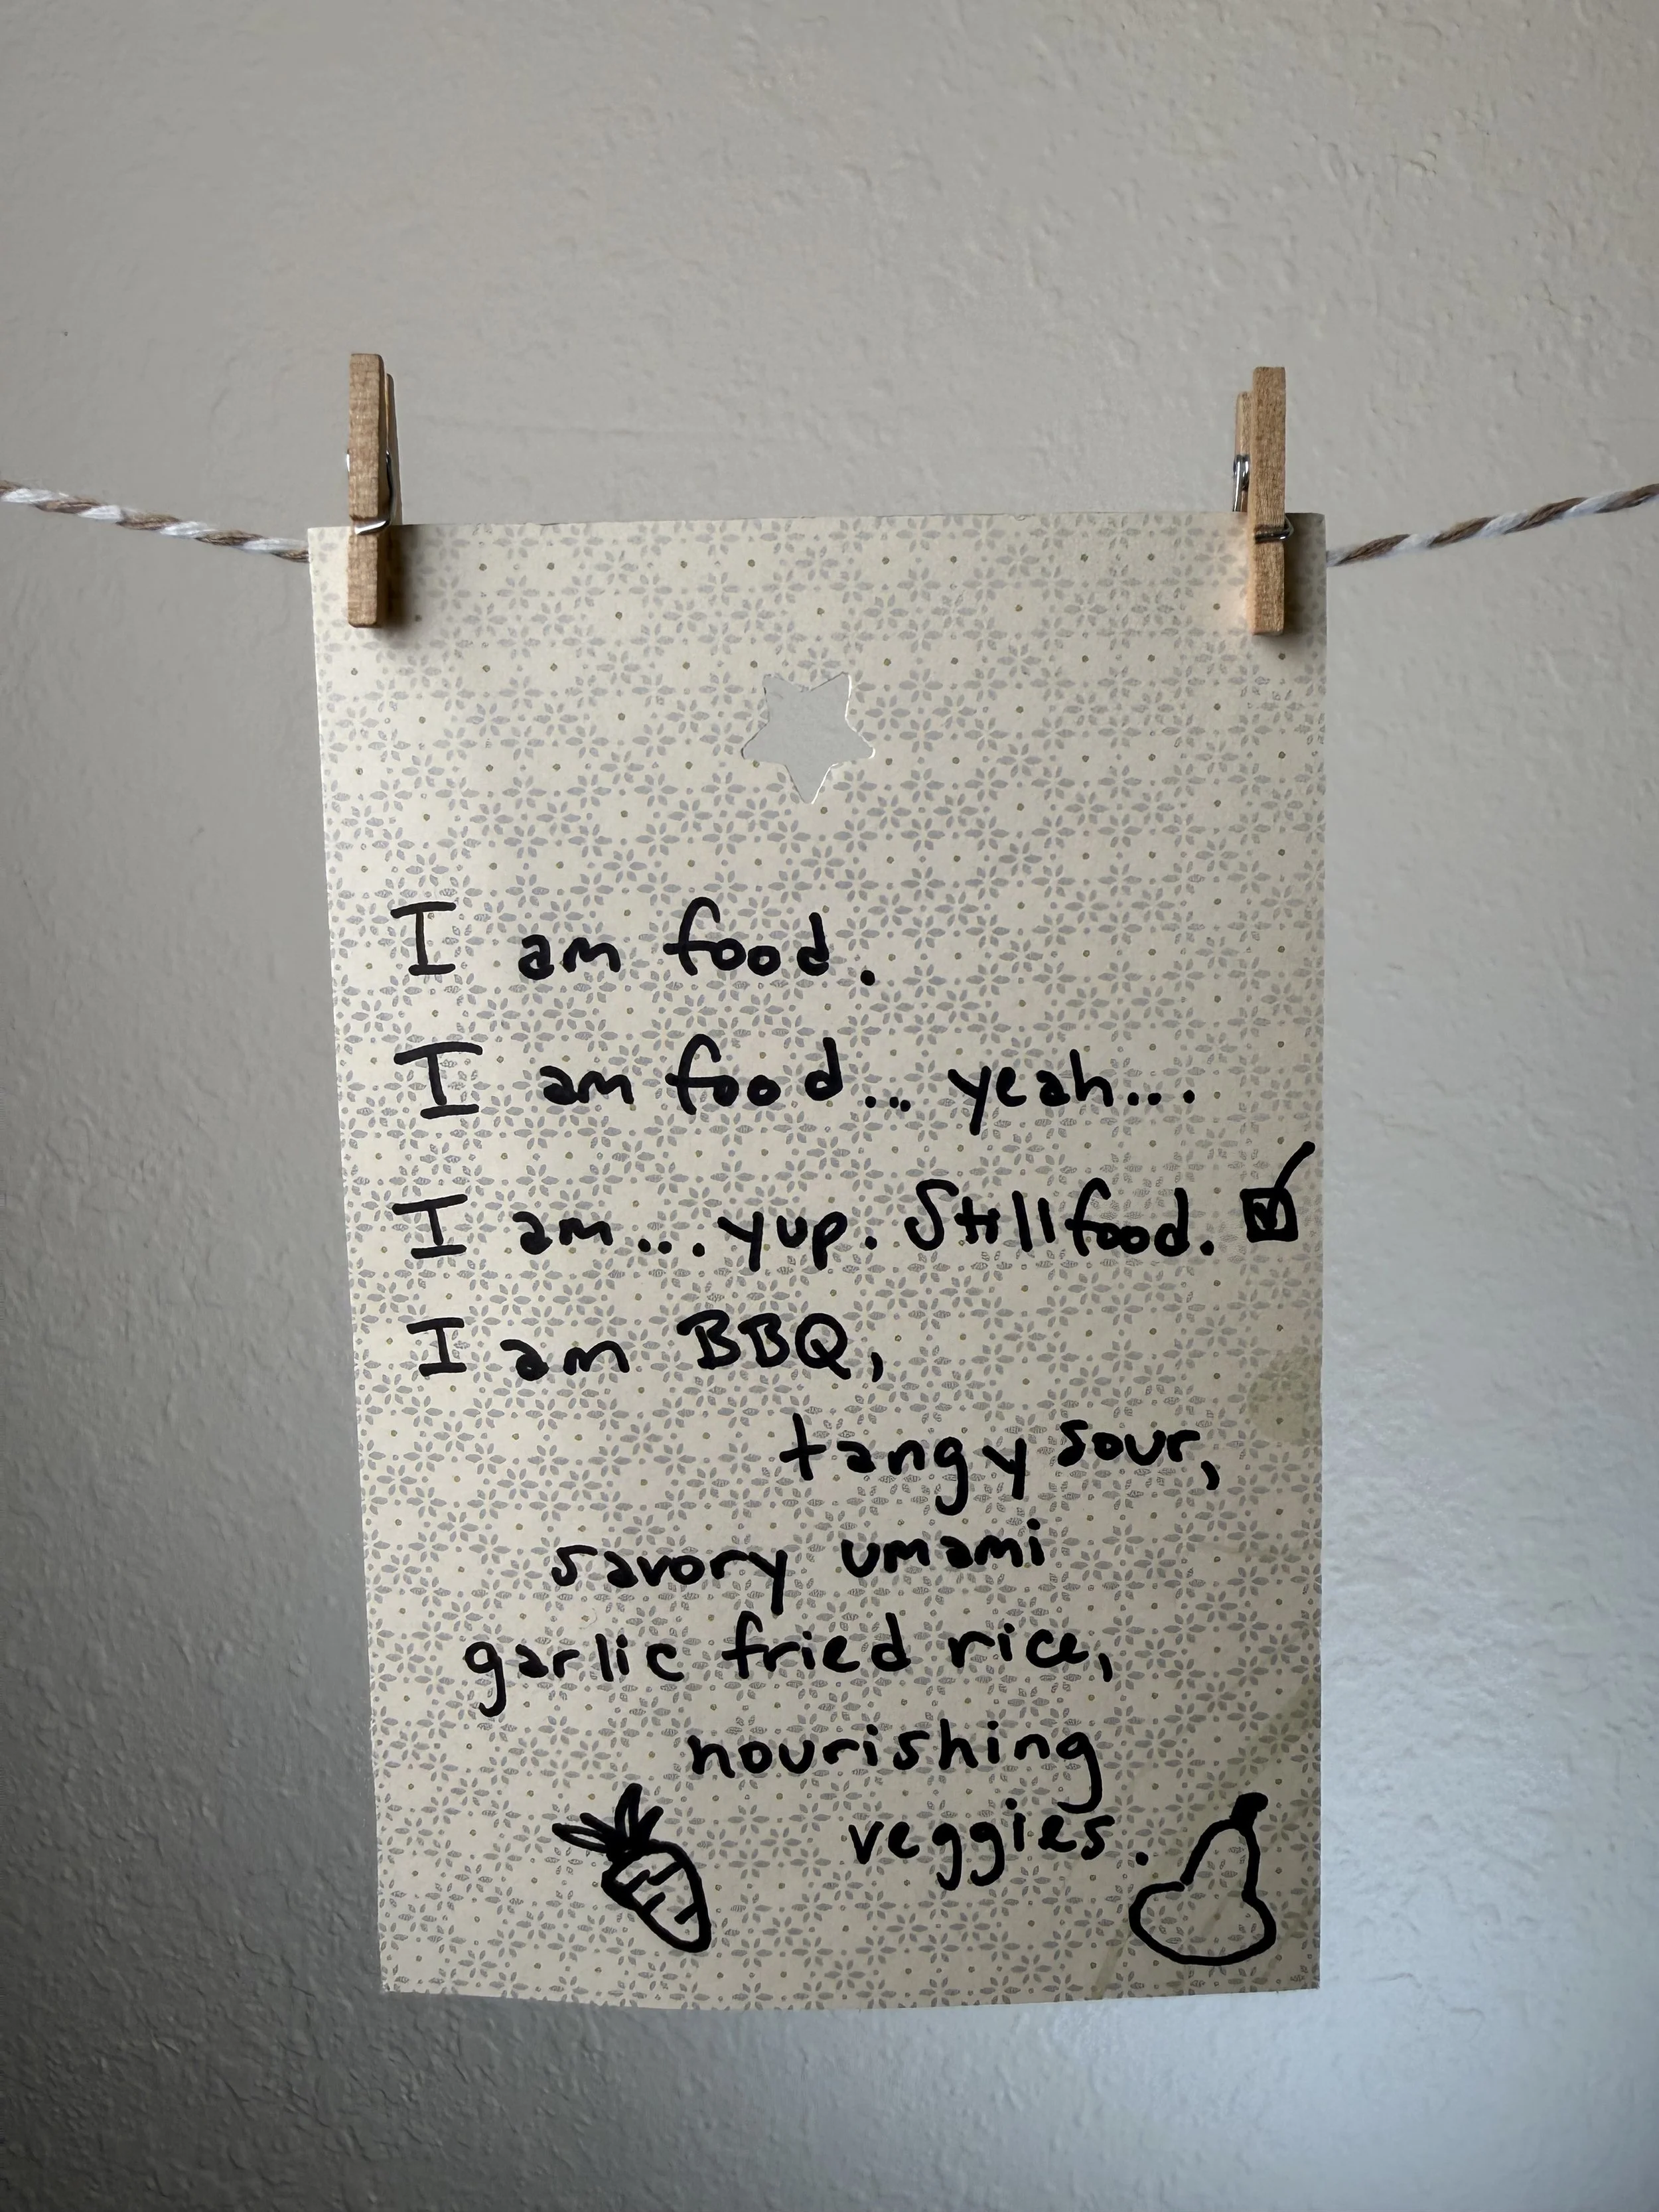 I am food.
I am food... yeah...
I am... yup. Still food. ☑
I am BBQ,
tangy sour,
savory umami
garlic fried rice,
nourishing
veggies.